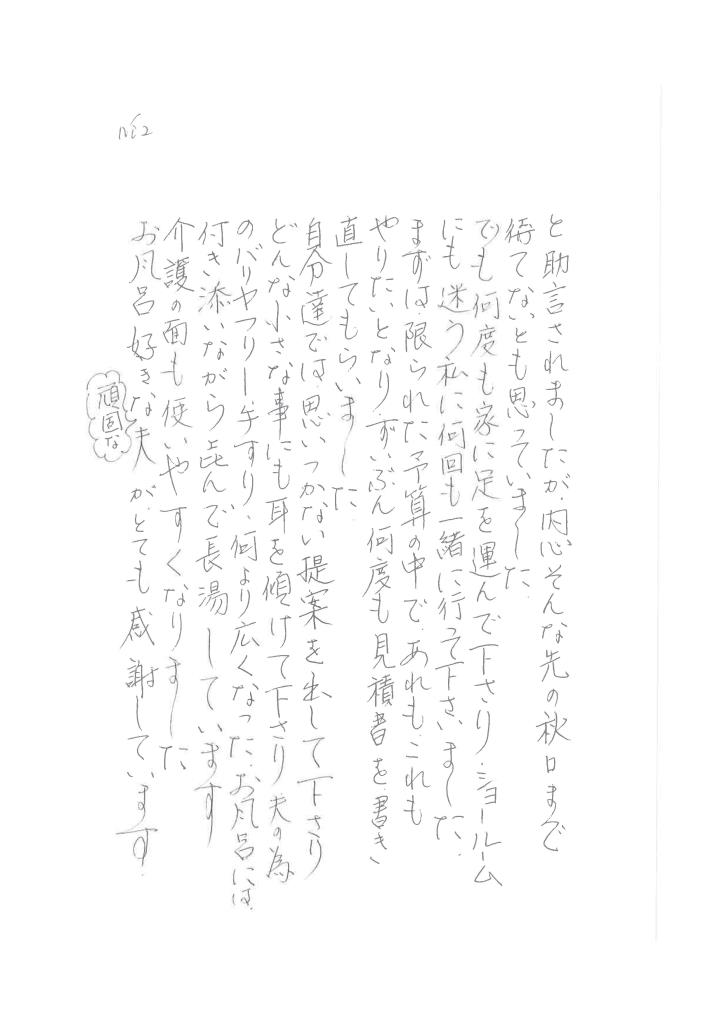 No2
と助言されましたが、内心そんな先の秋口まで
待てないとも思っていました。
でも何度も家に足を運んで下さり、ショールーム
にも迷う私に何回も一緒に行って下さいました。
まずは、限られた予算の中で、あれも、これも
やりたいとなり、ずいぶん何度も見積書を書き
直してもらいました。
自分達では、思いつかない提案を出して下さり
どんな小さな事にも耳を傾けて下さり、夫の為
のバリヤフリー、手すり、何より広くなった、お風呂には、
付き添いながら喜んで長湯しています
介護の面も使いやすくなりました
お風呂好きな夫が、とても感謝しています。
頑固な